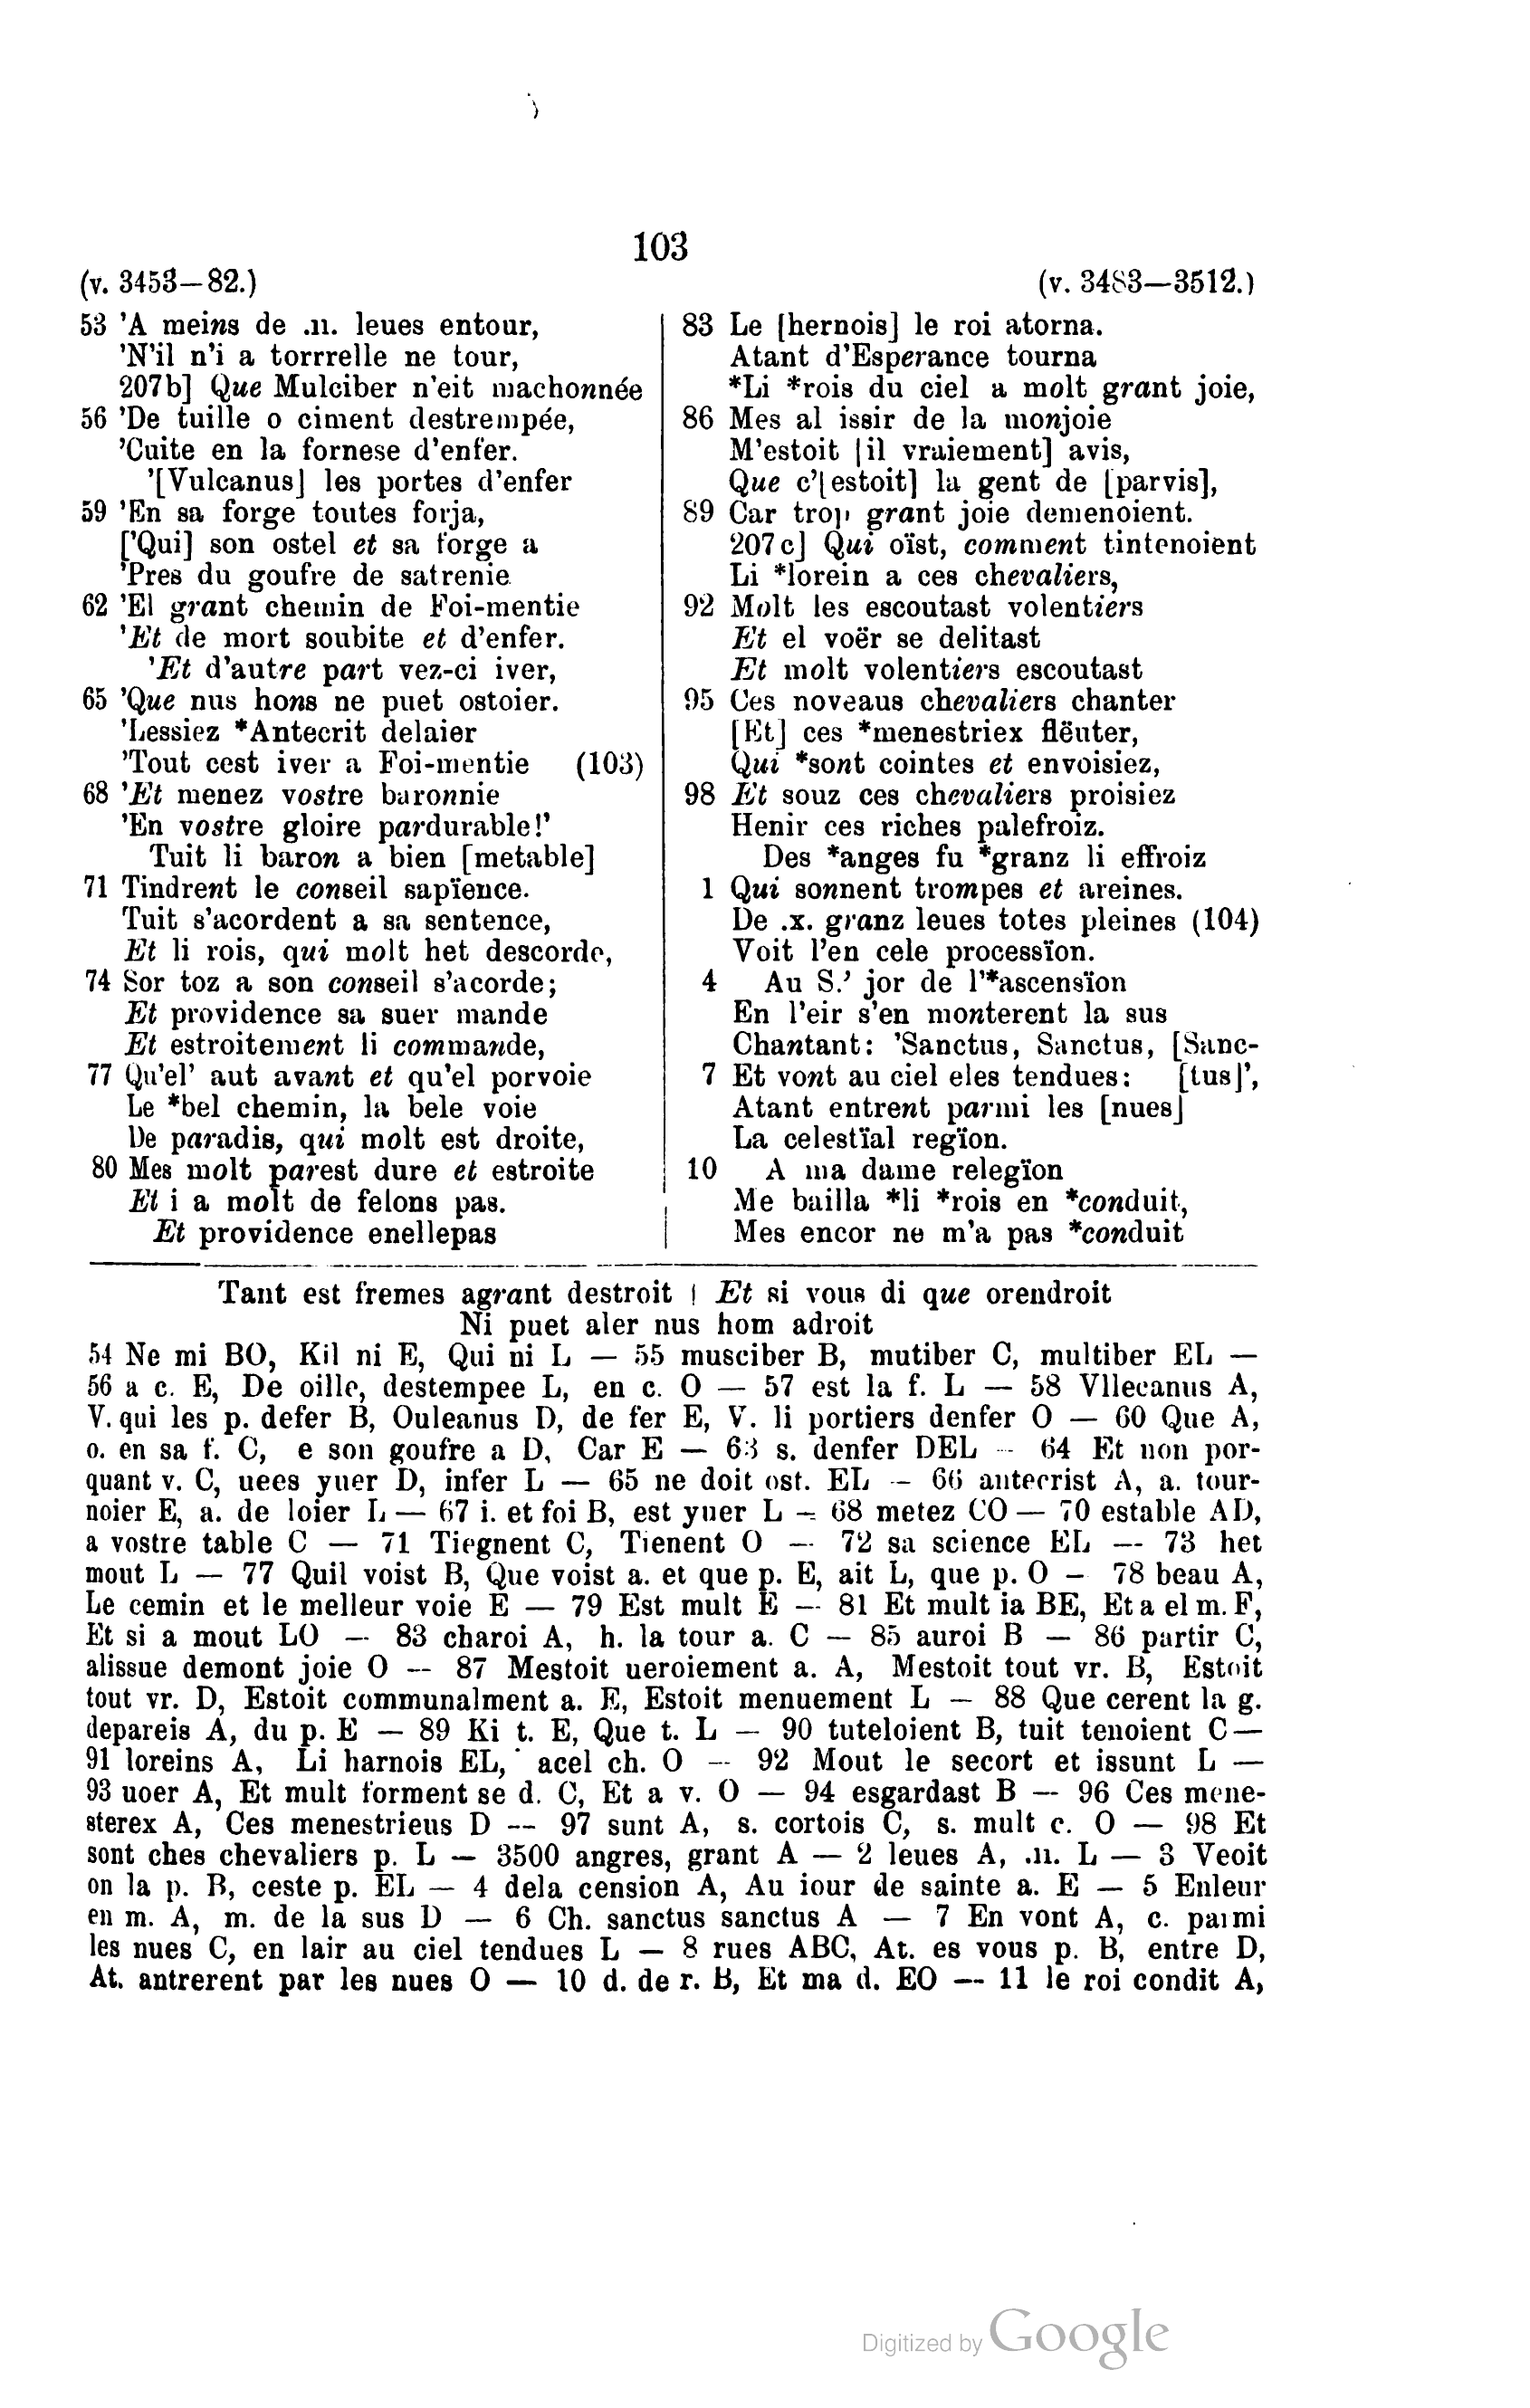 103
(v. 3453—82.)
53 'A meins de .II. leues entour,
'N'il n'i a torrrelle ne tour,
207b] Que Mulciber n'eit machonnée
56 'De tuille o ciment destrempée,
'Cuite en la fornese d'enfer.
'[Vulcanus] les portes d'enfer
59 'En sa forge toutes forja,
['Qui] son ostel et sa forge a
'Pres du goufre de satrenie
62 'El grant chemin de Foi-mentie
'Et de mort soubite et d'enfer.
'Et d'autre part vez-ci iver,
65 'Que nus hons ne puet ostoier.
'Lessiez *Antecrit delaier
'Tout cest iver a Foi-mentie (103)
68 'Et menez vostre baronnie
'En vostre gloire pardurable!'
Tuit li baron a bien [metable]
71 Tindrent le conseil sapïence.
Tuit s'acordent a sa sentence,
Et li rois, qui molt het descorde,
74 Sor toz a son conseil s'acorde;
Et providence sa suer mande
Et estroitement li commande,
77 Qu'el' aut avant et qu'el porvoie
Le *bel chemin, la bele voie
De paradis, qui molt est droite,
80 Mes molt parest dure et estroite
Et i a molt de felons pas.
Et providence enellepas
(v. 3483—3512.)
83 Le [hernois] le roi atorna.
Atant d'Esperance tourna
*Li *rois du ciel a molt grant joie,
86 Mes al issir de la monjoie
M'estoit [il vraiement] avis,
Que c'[estoit] la gent de [parvis],
89 Car trop grant joie demenoient.
207c] Qui oïst, comment tintenoient
Li *lorein a ces chevaliers,
92 Molt les escoutast volentiers
Et el voër se delitast
Et molt volentiers escoutast
95 Ces noveaus chevaliers chanter
[Et] ces *menestriex flëuter,
Qui *sont cointes et envoisiez,
98 Et souz ces chevaliers proisiez
Henir ces riches palefroiz.
Des *anges fu *granz li effroiz
1 Qui sonnent trompes et areines.
De .x. granz leues totes pleines (104)
Voit l'en cele processïon.
4 Au S.' jor de l'*ascensïon
En l'eir s'en monterent la sus
Chantant: 'Sanctus, Sanctus, [Sanc-
7 Et vont au ciel eles tendues: [tus]',
Atant entrent parmi les [nues]
La celestïal regïon.
10 A ma dame relegïon
Me bailla *li *rois en *conduit,
Mes encor ne m'a pas *conduit
Tant est fremes agrant destroit | Et si vous di que orendroit
Ni puet aler nus hom adroit
54 Ne mi BO, Kil ni E, Qui ni L — 55 musciber B, mutiber C, multiber EL —
56 a c. E, De oille, destempee L, en c. O — 57 est la f. L — 58 Vllecanus A,
V. qui les p. defer B, Ouleanus D, de fer E, V. li portiers denfer O — 60 Que A,
o. en sa f. C, e son goufre a D, Car E — 63 s. denfer DEL — 64 Et non por-
quant v. C, uees yuer D, infer L — 65 ne doit ost. EL — 66 antecrist A, a. tour-
noier E, a. de loier L — 67 i. et foi B, est yuer L — 68 metez CO — 70 estable AD,
a vostre table C — 71 Tiegnent C, Tienent O — 72 sa science EL — 73 het
mout L — 77 Quil voist B, Que voist a. et que p. E, ait L, que p. O — 78 beau A,
Le cemin et le melleur voie E — 79 Est mult E — 81 Et mult ia BE, Et a el m. F,
Et si a mout LO — 83 charoi A, h. la tour a. C — 85 auroi B — 86 partir C,
alissue demont joie O — 87 Mestoit ueroiement a. A, Mestoit tout vr. B, Estoit
tout vr. D, Estoit communalment a. E, Estoit menuement L — 88 Que cerent la g.
depareis A, du p. E — 89 Ki t. E, Que t. L — 90 tuteloient B, tuit tenoient C —
91 loreins A, Li harnois EL, acel ch. O — 92 Mout le secort et issunt L —
93 uoer A, Et mult forment se d. C, Et a v. O — 94 esgardast B — 96 Ces mene-
sterex A, Ces menestrieus D — 97 sunt A, s. cortois C, s. mult c. O — 98 Et
sont ches chevaliers p. L — 3500 angres, grant A — 2 leues A, .II. L — 3 Veoit
on la p. B, ceste p. EL — 4 dela cension A, Au iour de sainte a. E — 5 Enleur
en m. A, m. de la sus D — 6 Ch. sanctus sanctus A — 7 En vont A, c. parmi
les nues C, en lair au ciel tendues L — 8 rues ABC, At. es vous p. B, entre D,
At. antrerent par les nues O — 10 d. de r. B, Et ma d. EO — 11 le roi condit A,
Digitized by Google